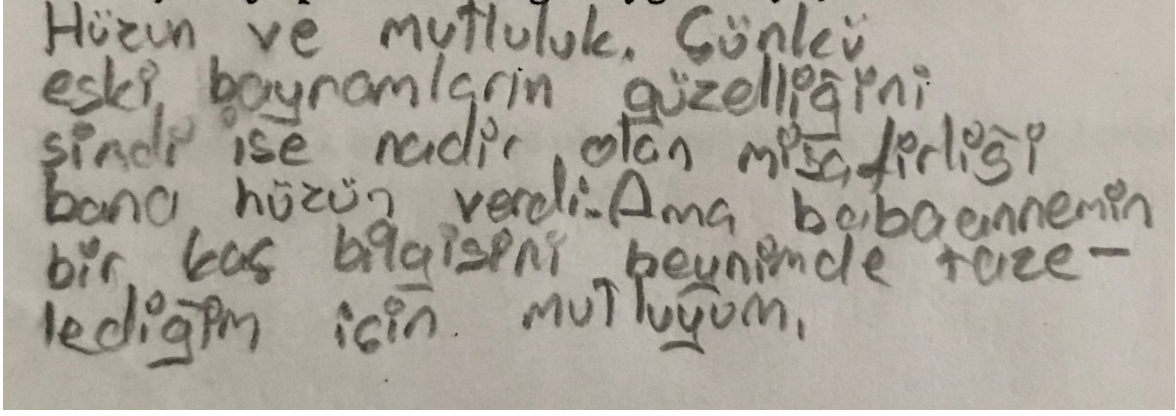 Hüzün ve mutluluk. Çünkü
eski bayramların güzelliğini
şindi ise nadir olan misafirliği
bana hüzün verdi. Ama babaannemin
bir kaç bilgisini beynimde taze-
lediğim için mutluyum.